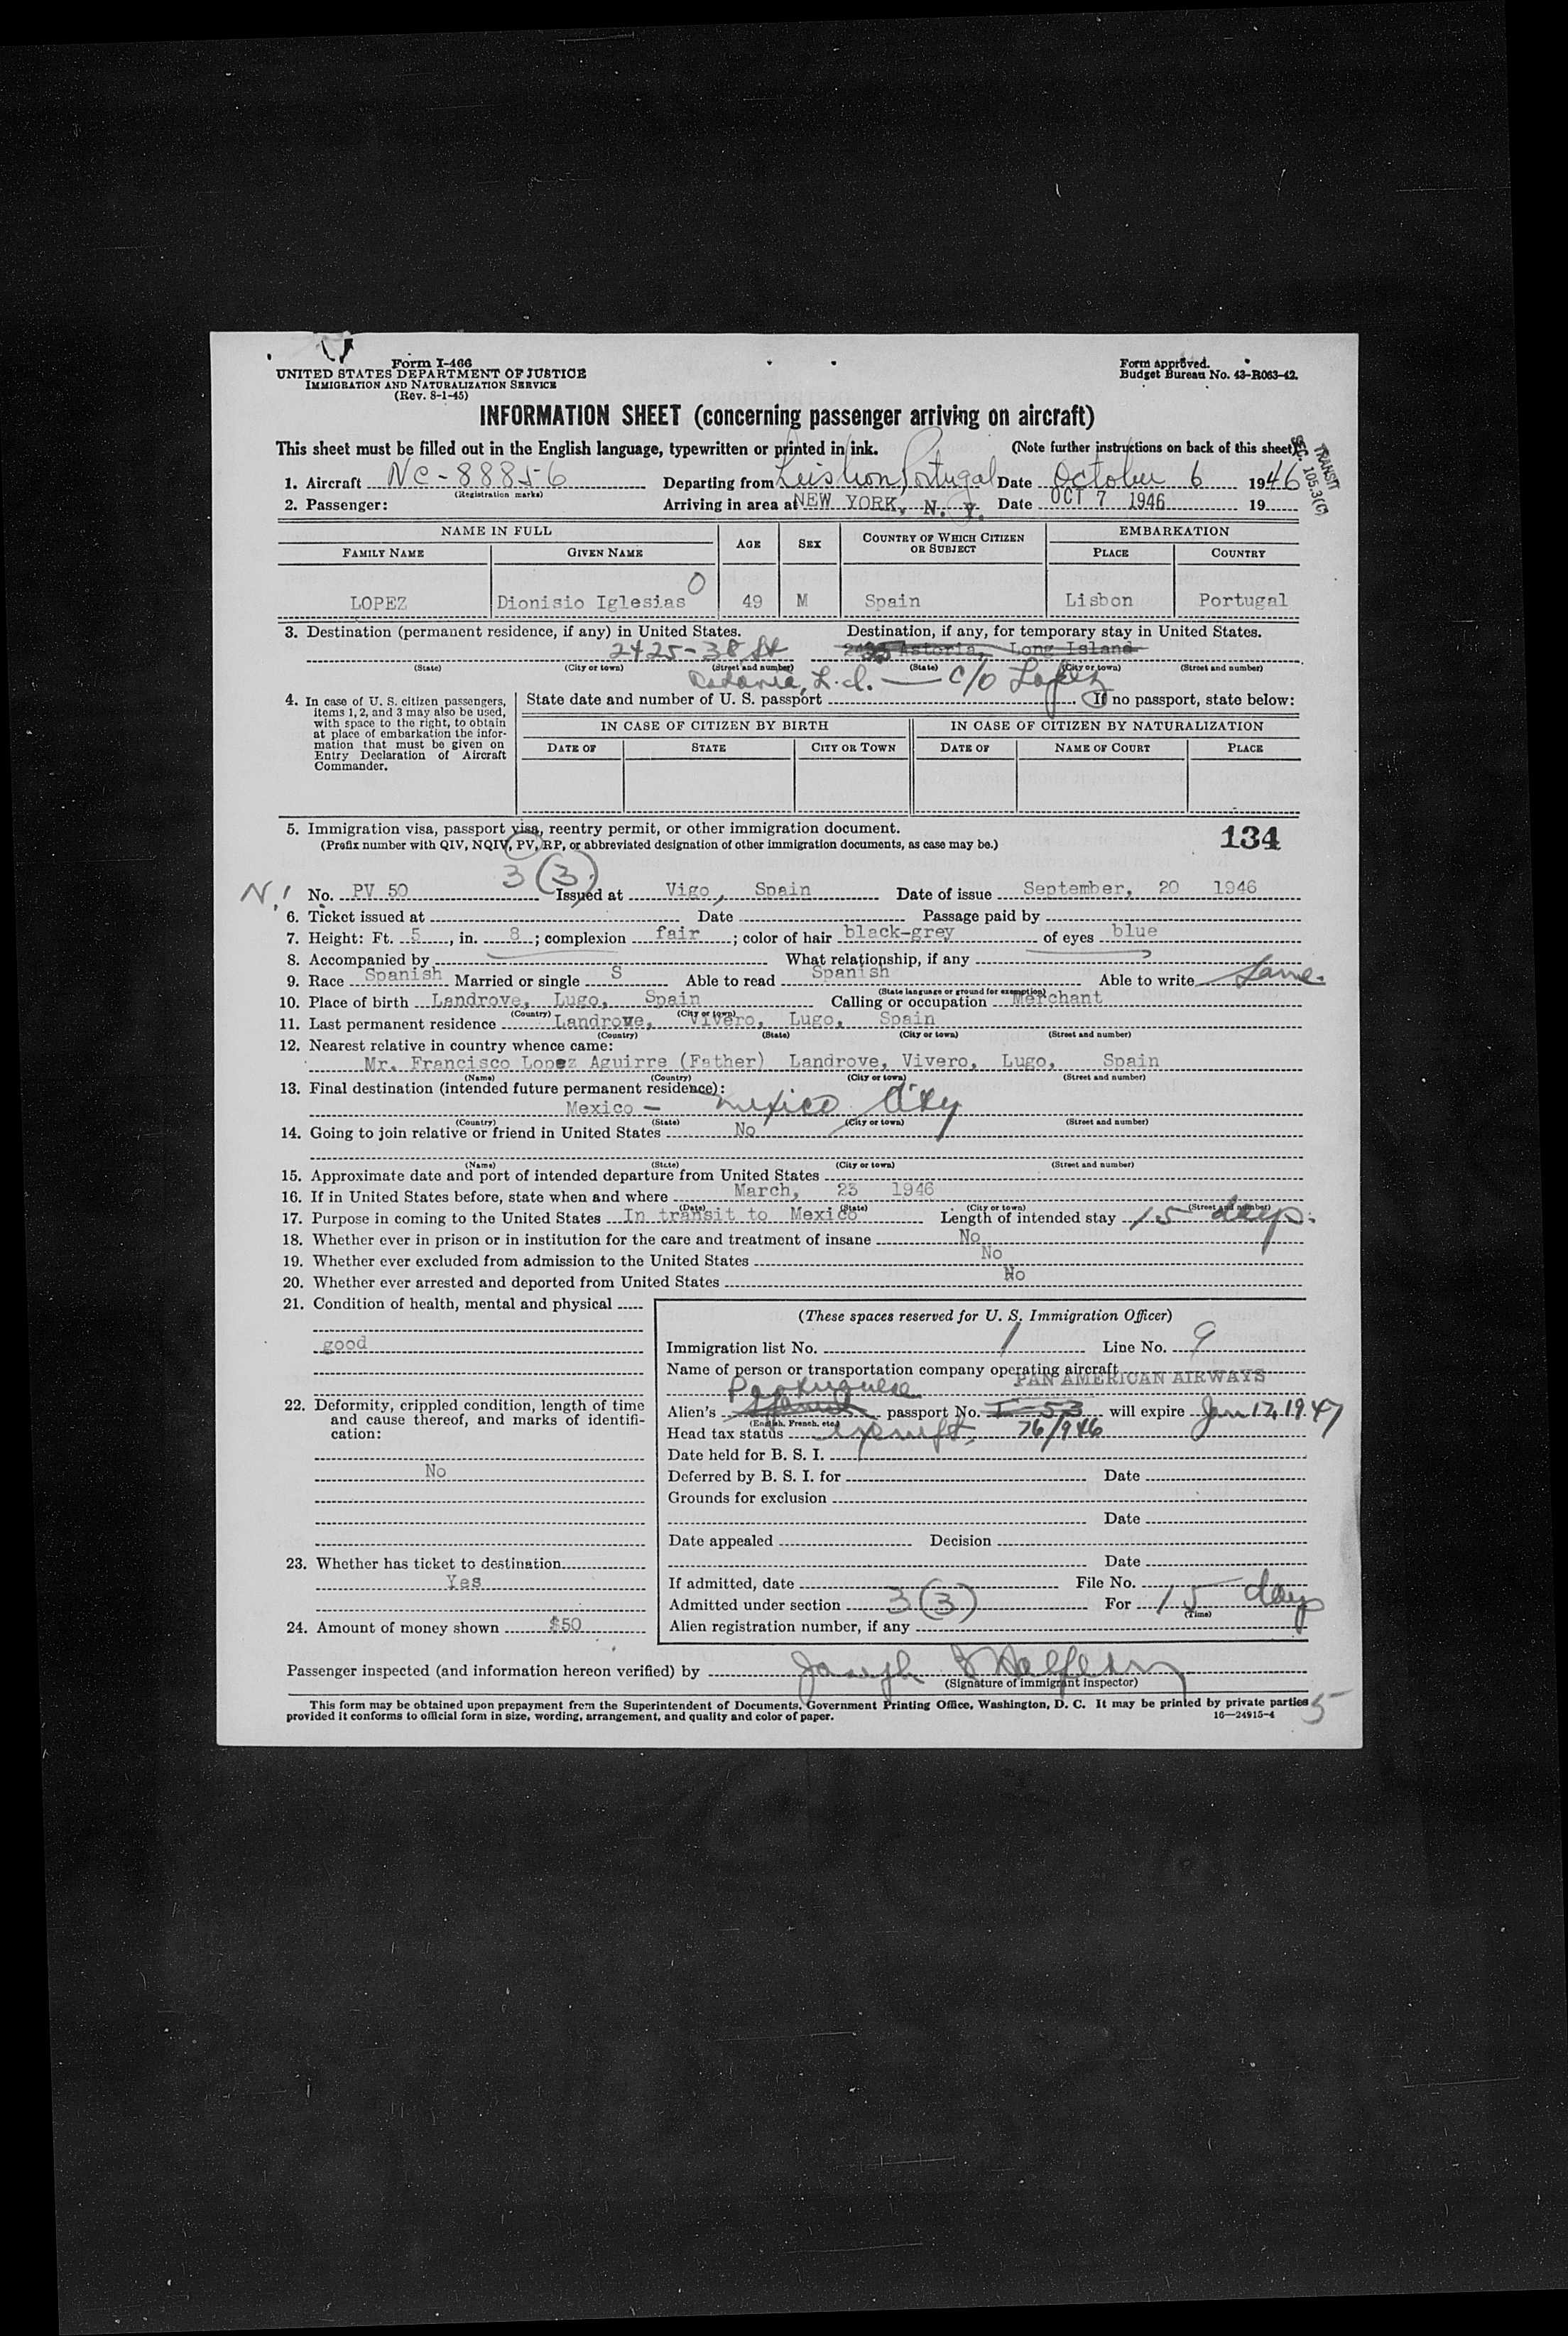 Form I-466
UNITED STATES DEPARTMENT OF JUSTICE
IMMIGRATION AND NATURALIZATION SERVICE
(Rev. 8-1-45)
Form approved.
Budget Bureau No. 43-R063-42.
INFORMATION SHEET (concerning passenger arriving on aircraft)
This sheet must be filled out in the English language, typewritten or printed in ink. (Note further instructions on back of this sheet)
TRANSIT
SEC. 105.3(C)
1. Aircraft NC-88856 Departing from Portugal Date October 6 1946
(Registration marks)
2. Passenger: Arriving in area at NEW YORK, N. Y. Date OCT 7 1946 19
NAME IN FULL AGE SEX COUNTRY OF WHICH CITIZEN OR SUBJECT EMBARKATION
FAMILY NAME GIVEN NAME PLACE COUNTRY
O
LOPEZ Dionisio Iglesias 49 M Spain Lisbon Portugal
3. Destination (permanent residence, if any) in United States. Destination, if any, for temporary stay in United States.
2425-38 St Astoria, Long Island
(State) (City or town) (Street and number) (State) (City or town) (Street and number)
L.I. — c/o Lopez
4. In case of U. S. citizen passengers, items 1, 2, and 3 may also be used, with space to the right, to obtain at place of embarkation the information that must be given on Entry Declaration of Aircraft Commander.
State date and number of U. S. passport If no passport, state below:
IN CASE OF CITIZEN BY BIRTH IN CASE OF CITIZEN BY NATURALIZATION
DATE OF STATE CITY OR TOWN DATE OF NAME OF COURT PLACE
5. Immigration visa, passport visa, reentry permit, or other immigration document.
(Prefix number with QIV, NQIV, PV, RP, or abbreviated designation of other immigration documents, as case may be.)
134
3(3)
No. PV 50 Issued at Vigo, Spain Date of issue September, 20 1946
6. Ticket issued at Date Passage paid by
7. Height: Ft. 5, in. 8; complexion fair; color of hair black-grey of eyes blue
8. Accompanied by What relationship, if any
9. Race Spanish Married or single S Able to read Spanish Able to write Same
(State language or ground for exemption)
10. Place of birth Landrove, Lugo, Spain Calling or occupation Merchant
(Country) (City or town)
11. Last permanent residence Landrove, Vivero, Lugo, Spain
(Country) (State) (City or town) (Street and number)
12. Nearest relative in country whence came:
Mr. Francisco Lopez Aguirre (Father) Landrove, Vivero, Lugo, Spain
(Name) (Country) (City or town) (Street and number)
13. Final destination (intended future permanent residence):
Mexico – Mexico City
(Country) (State) (City or town) (Street and number)
14. Going to join relative or friend in United States No
(Name) (State) (City or town) (Street and number)
15. Approximate date and port of intended departure from United States
16. If in United States before, state when and where March, 23 1946
(Date) (State) (City or town) (Street and number)
17. Purpose in coming to the United States In transit to Mexico Length of intended stay 15 days.
18. Whether ever in prison or in institution for the care and treatment of insane No
19. Whether ever excluded from admission to the United States No
20. Whether ever arrested and deported from United States No
21. Condition of health, mental and physical
good
22. Deformity, crippled condition, length of time and cause thereof, and marks of identification:
No
23. Whether has ticket to destination
Yes
24. Amount of money shown $50
(These spaces reserved for U. S. Immigration Officer)
Immigration list No. 1 Line No. 9
Name of person or transportation company operating aircraft
PAN AMERICAN AIRWAYS
Portuguese
Alien's Spanish passport No. I-53 will expire Jan 17, 1947
(English, French, etc.)
Head tax status exempt, 76/946
Date held for B. S. I.
Deferred by B. S. I. for Date
Grounds for exclusion
Date
Date appealed Decision
Date
If admitted, date File No.
Admitted under section 3(3) For 15 days
(Time)
Alien registration number, if any
Passenger inspected (and information hereon verified) by Joseph
(Signature of immigrant inspector)
This form may be obtained upon prepayment from the Superintendent of Documents, Government Printing Office, Washington, D. C. It may be printed by private parties
provided it conforms to official form in size, wording, arrangement, and quality and color of paper. 16—24915-4
5